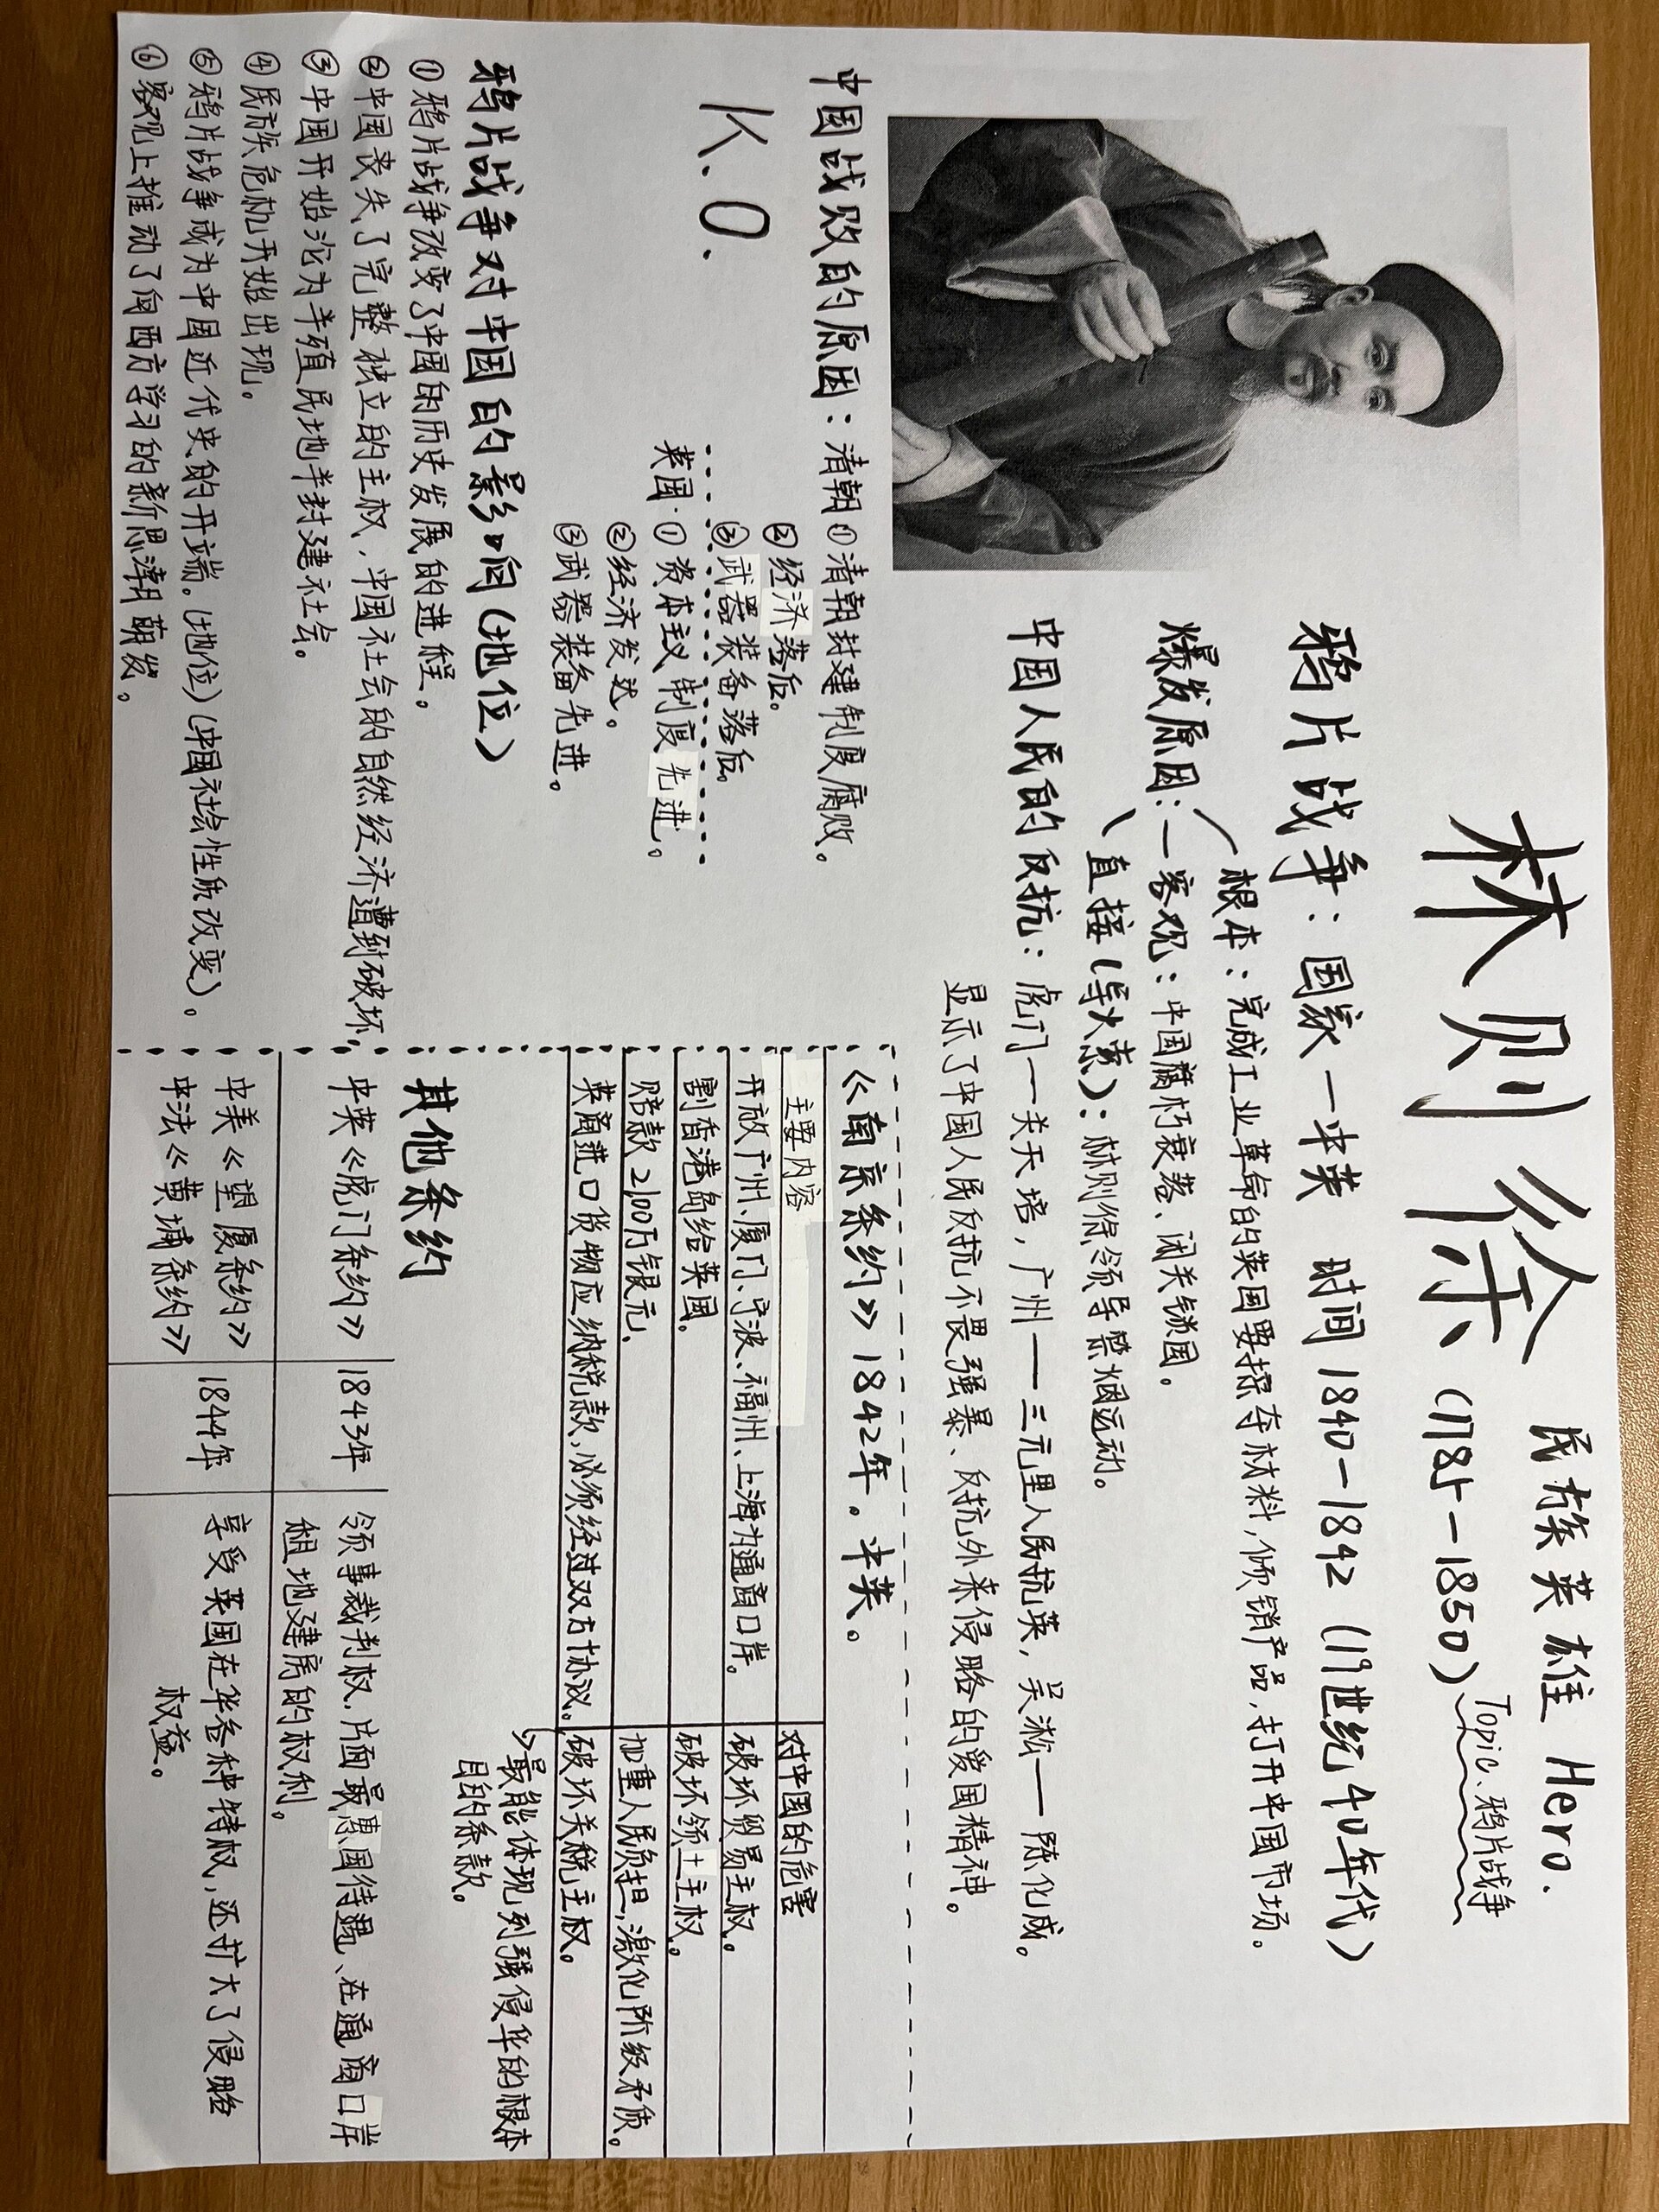 林则徐 (1785-1850)
民族英雄 Hero.
Topic、鸦片战争
鸦片战争：国家—中英 时间 1840-1842 (19世纪40年代)
爆发原因：
根本：完成工业革命的英国要掠夺材料，倾销产品，打开中国市场。
客观：中国腐朽衰落、闭关锁国。
直接(导火索)：林则徐领导禁烟运动。
中国人民的反抗：虎门——关天培，广州——三元里人民抗英，吴淞——陈化成。
显示了中国人民反抗不畏强暴、反抗外来侵略的爱国精神。
中国战败的原因：清朝①清朝封建制度腐败。
②经济落后。
③武器装备落后。
K.O.
英国·①资本主义制度先进。
②经济发达。
③武器装备先进。
鸦片战争对中国的影响(地位)
①鸦片战争改变了中国的历史发展的进程。
②中国丧失了完整独立的主权，中国社会的自然经济遭到破坏。
③中国开始沦为半殖民地半封建社会。
④民族危机开始出现。
⑤鸦片战争成为中国近代史的开端。(地位)(中国社会性质改变)。
⑥客观上推动了向西方学习的新思潮萌发。
《南京条约》1842年。中英。
主要内容 对中国的危害
开放广州、厦门、宁波、福州、上海为通商口岸。 破坏贸易主权。
割香港岛给英国。 破坏领土主权。
赔款2100万银元。 加重人民负担，激化阶级矛质。
英商进口货物应纳税款，必须经过双方协议。 破坏关税主权。
→最能体现列强侵华的根本
目的条款。
其他条约
中英《虎门条约》 1843年 领事裁判权，片面最惠国待遇、在通商口岸
租地建房的权利。
中美《望厦条约》
中法《黄埔条约》 1844年 享受英国在华各种特权，还扩大了侵略
权益。